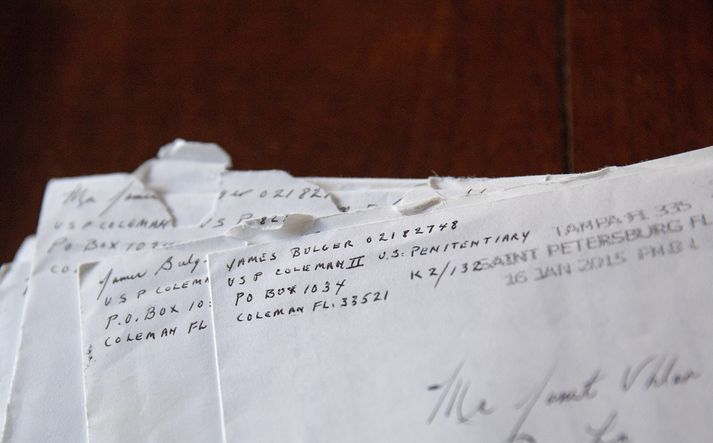 Mr Jam
USP COLEMAN
PO BOX 1034
CO
er 021821
US P
James Bulg
USP COLEMA
P.O. BOX 10
COLEMAN FL
JAMES BULGER 02182748
USP COLEMAN II U.S. PENITENTIARY
PO BOX 1034
COLEMAN FL. 33521
K2/132
TAMPA FL 335
SAINT PETERSBURG FL
16 JAN 2015 PM 8 L
Ms Janet Uhlar